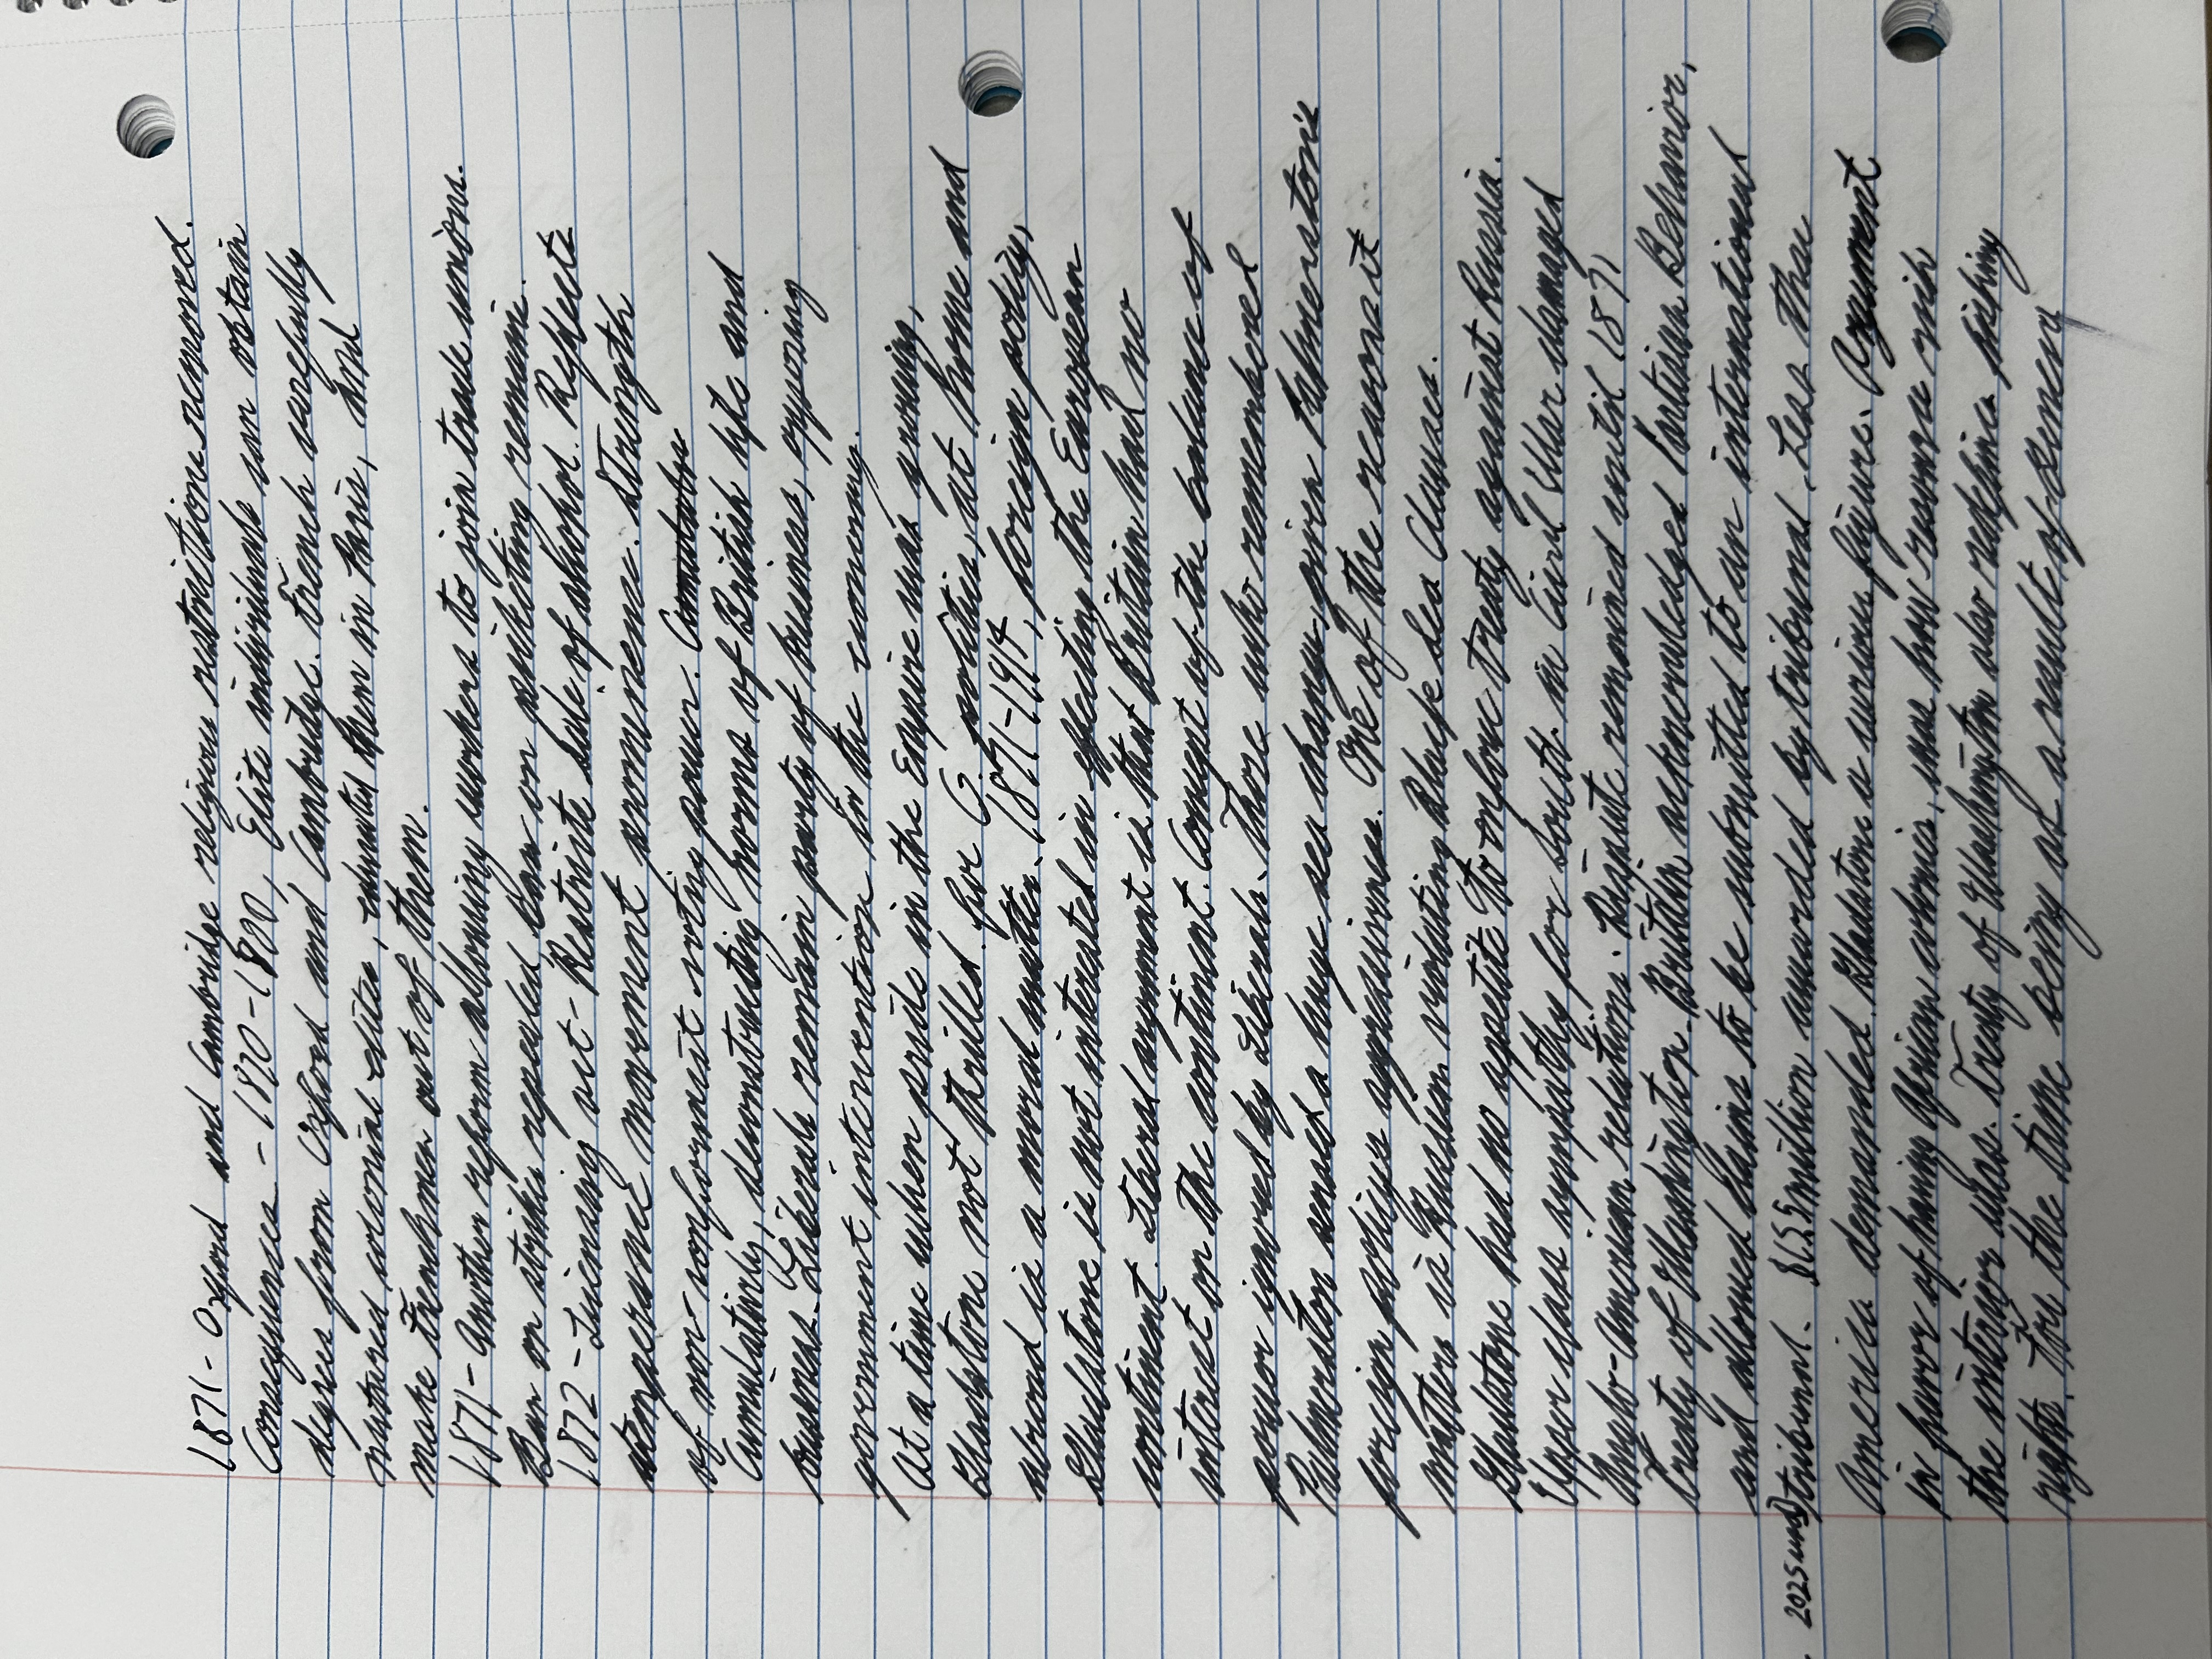 1871- Oxford and Cambridge religious restrictions removed.
Consequences - 1870-1800, Elite individuals can obtain
degrees from Oxford and Cambridge. French carefully
nutured colonial elites, educated them in Paris, and
make Frenchmen out of them.
1871- Another reform allowing workers to join trade unions.
Ban on strikes repealed, ban on picketing remains.
1872- Licensing act- Restricts sale of alcohol. Reflects
temperance movement prominence. Strength
of non-conformist voting power.
Cumulatively, deconstructing norms of British life and
business. Liberals remain party of business, opposing
government intervention in the economy.
At a time when pride in the Empire was growing,
Gladstone not thrilled. For G. politics, at home and
abroad is a moral matter. 1871-1914, foreign policy,
Gladstone is not interested in affecting the European
continent. Liberal argument is that Britain had no
interest on the continent. Concept of the balance of
power ignored by Liberals. Those who remembered
Palmerston sensed a huge sea change given Palmerston's
foreign policy aggressiveness. One of the reasons it
matters is Russian violating Black Sea Clauses.
Gladstone had no appetite to enforce treaty against Russia.
Upper class sympathy for South in Civil War damaged
Anglo-American relations. Dispute remained until 1871,
Treaty of Washington. Britain acknowledged Partisan Behavior,
and allowed claims to be submitted to an international
2025 usd) tribunal. $15.5 million awarded by tribunal. Less than
America demanded. Gladstone a curious figure. Argument
in favor of having African colonies, was how resource rich
the interior was. Treaty of Washington also redefines fishing
right. For the time being as a result of Seneca